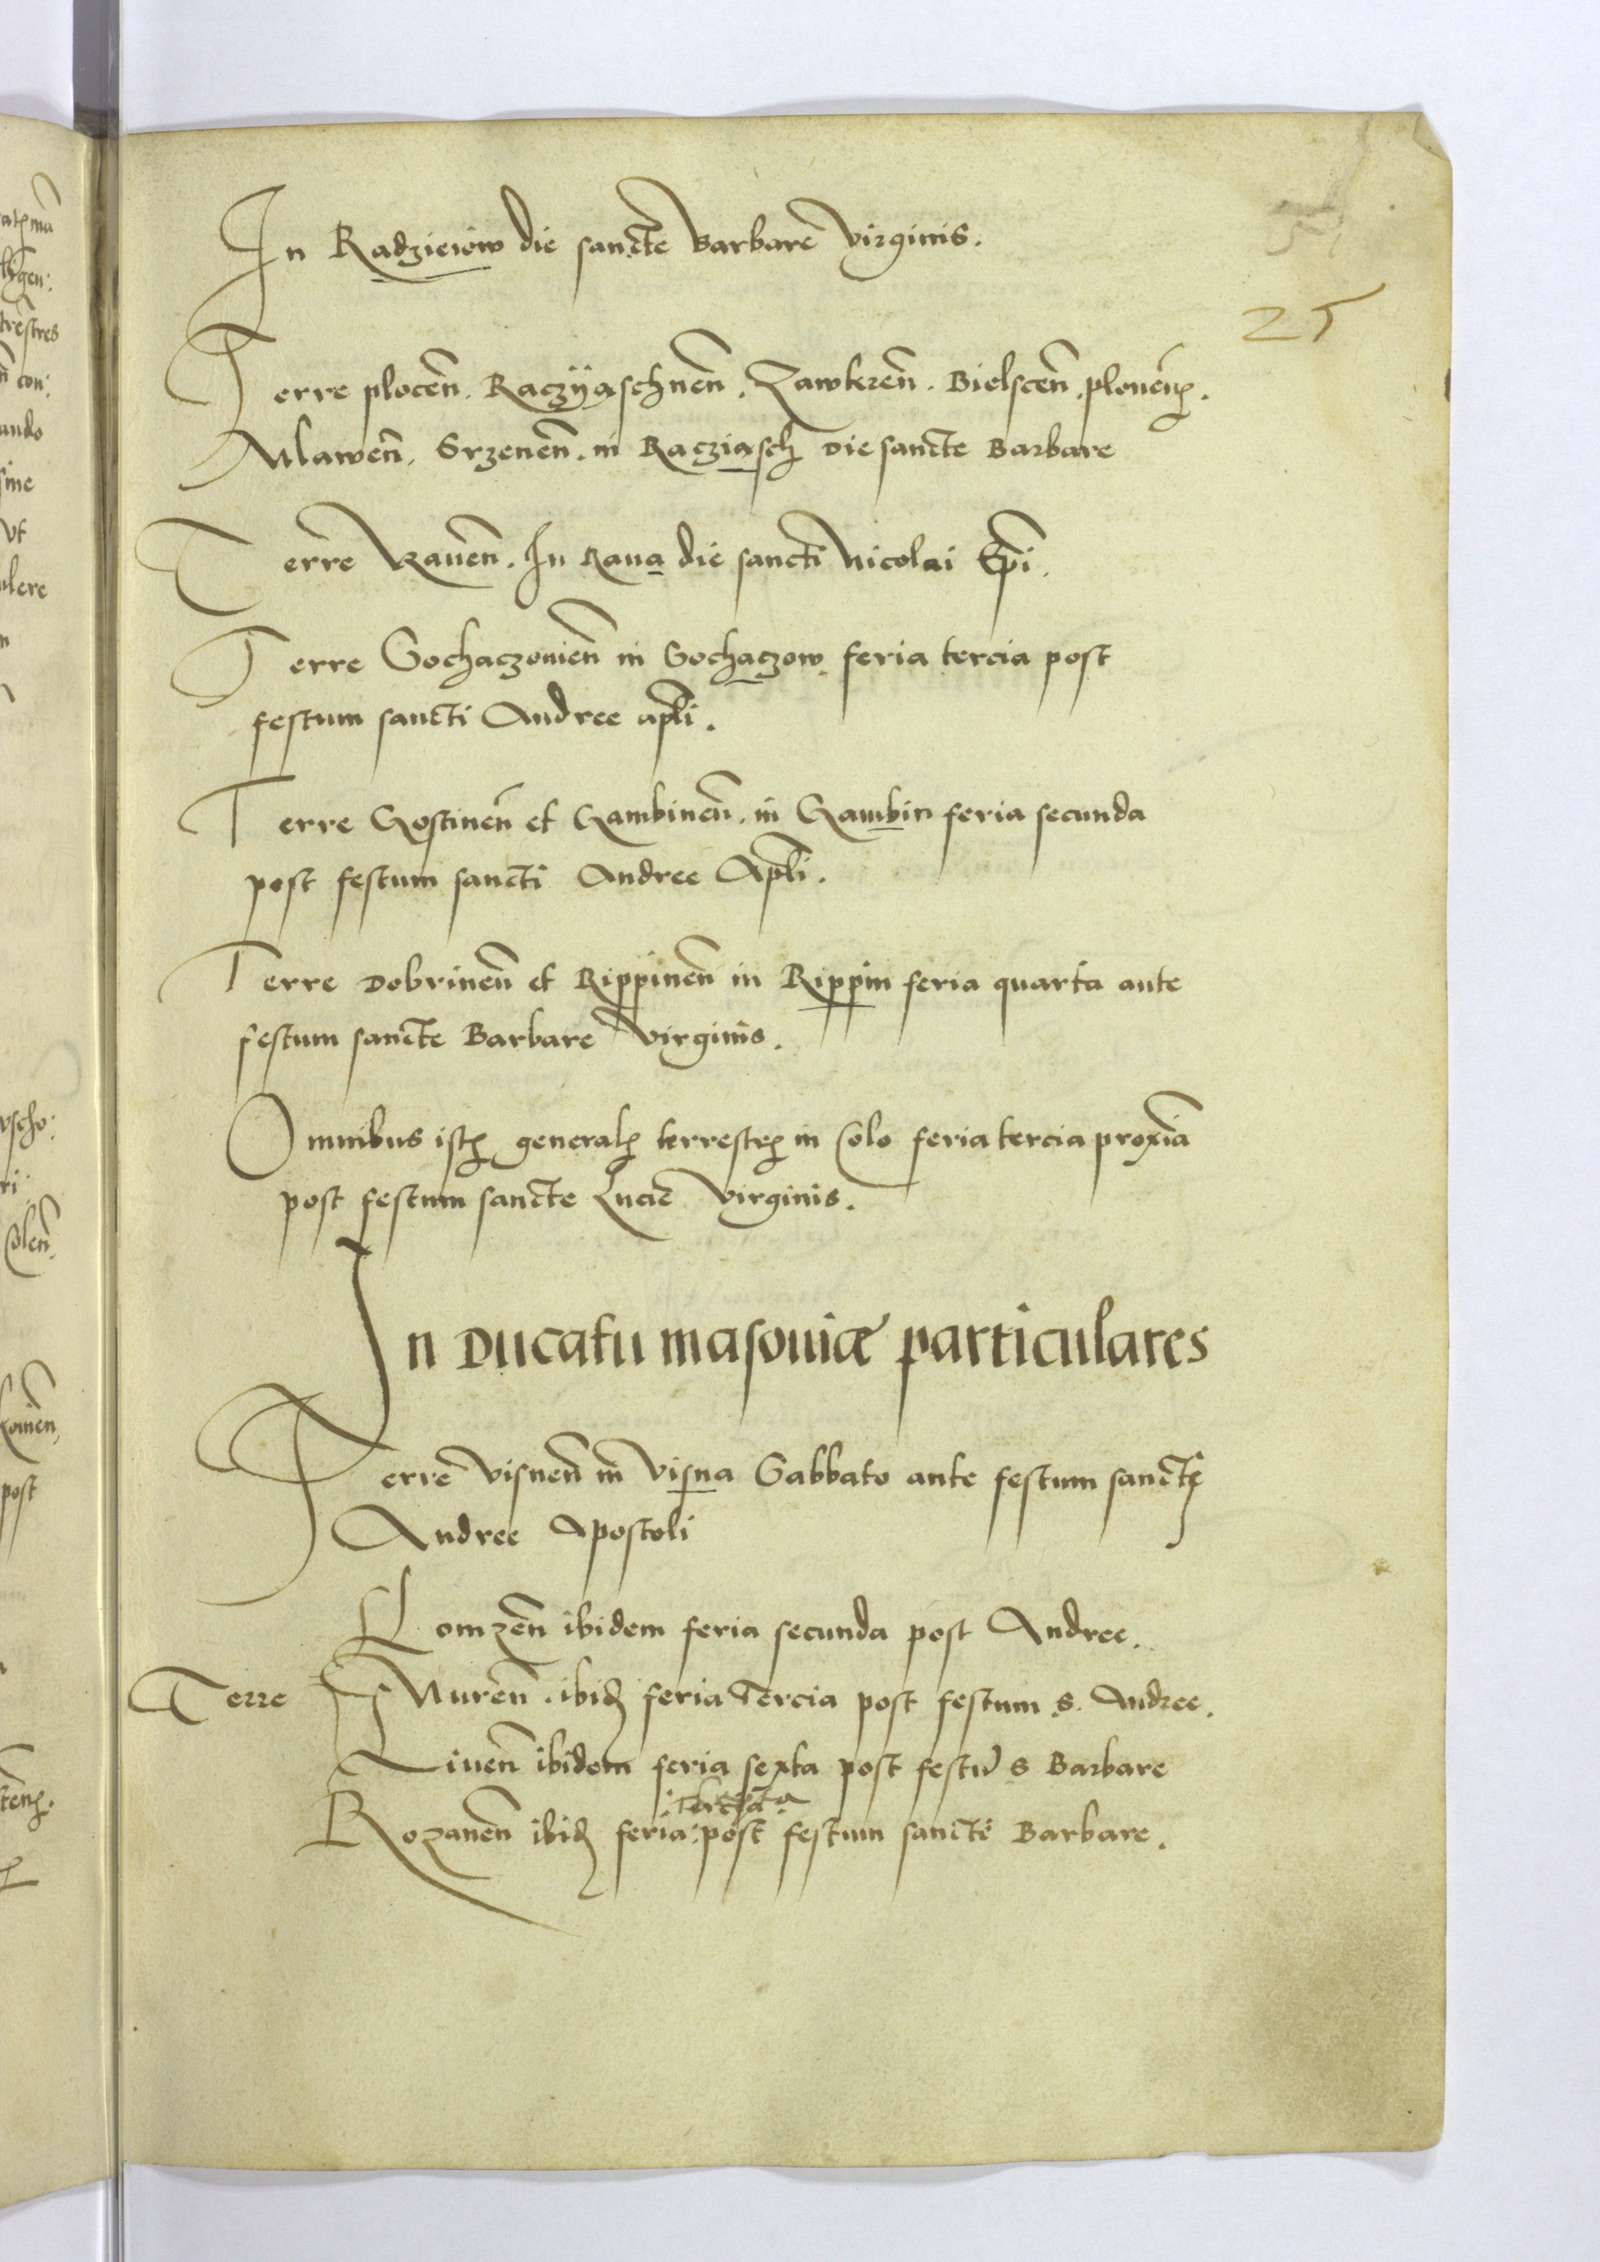 In Radzieiow die sancte Barbare Virginis.
25
Terre plocen̄. Raczÿaschnen̄. Zawkren̄. Bielscen̄.
Mlawen̄. Srzenen̄. in Racziasch die sancte Barbare
Terre Rauen̄. In Raua die sancti Nicolai Ep̄i.
Terre Sochaczouien̄ in Sochaczow. feria tercia post
festum sancti Andree ap̄li.
Terre Gostinen̄ et Gambinen̄. in Gambin feria secunda
post festum sancti Andree Ap̄li.
Terre Dobrinen̄ et Rippinen̄ in Rippin feria quarta ante
festum sancte Barbare Virginis.
Omnibus istꝭ generalꝭ terrestrꝭ in Colo feria tercia proxīa
post festum sancte Lucie Virginis.
In Ducatu masouiæ particulares
Terre Visnen̄ in Visna Sabbato ante festum
Andree Apostoli
Lomzen̄ ibidem feria secunda post Andree.
Terre Nuren̄. ibiđ feria Tercia post festum s. Andree.
Liuen̄ ibidem feria sexta post festū s Barbare
Rozanen̄ ibiđ feria: post festum sancte Barbare.